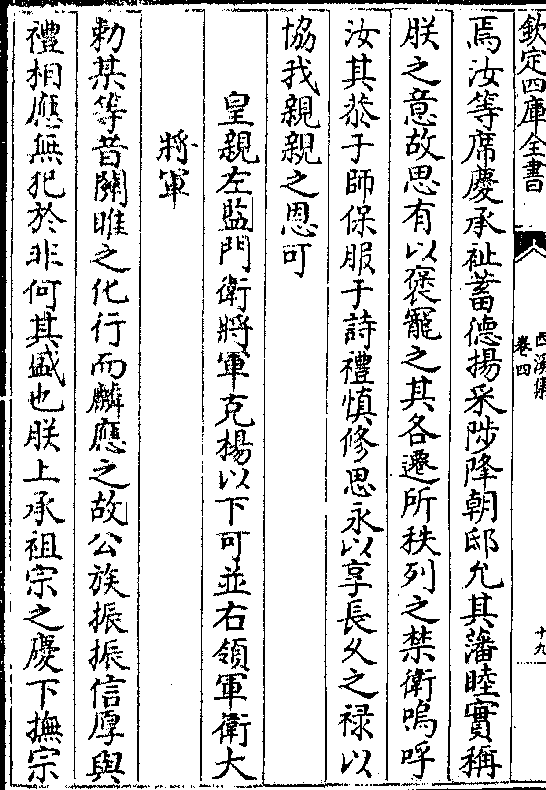 欽定四庫全書
西溪集
卷四
十九
焉汝等席慶承祉蓄德揚采陟降朝邸允其藩睦實稱
朕之意故思有以褒寵之其各遷所秩列之禁衛嗚呼
汝其恭于師保服于詩禮慎修思永以享長久之祿以
協我親親之恩可
皇親左監門衛將軍克楊以下可並右領軍衛大
將軍
勅某等昔關雎之化行而麟應之故公族振振信厚與
禮相應無犯於非何其盛也朕上承祖宗之慶下撫宗